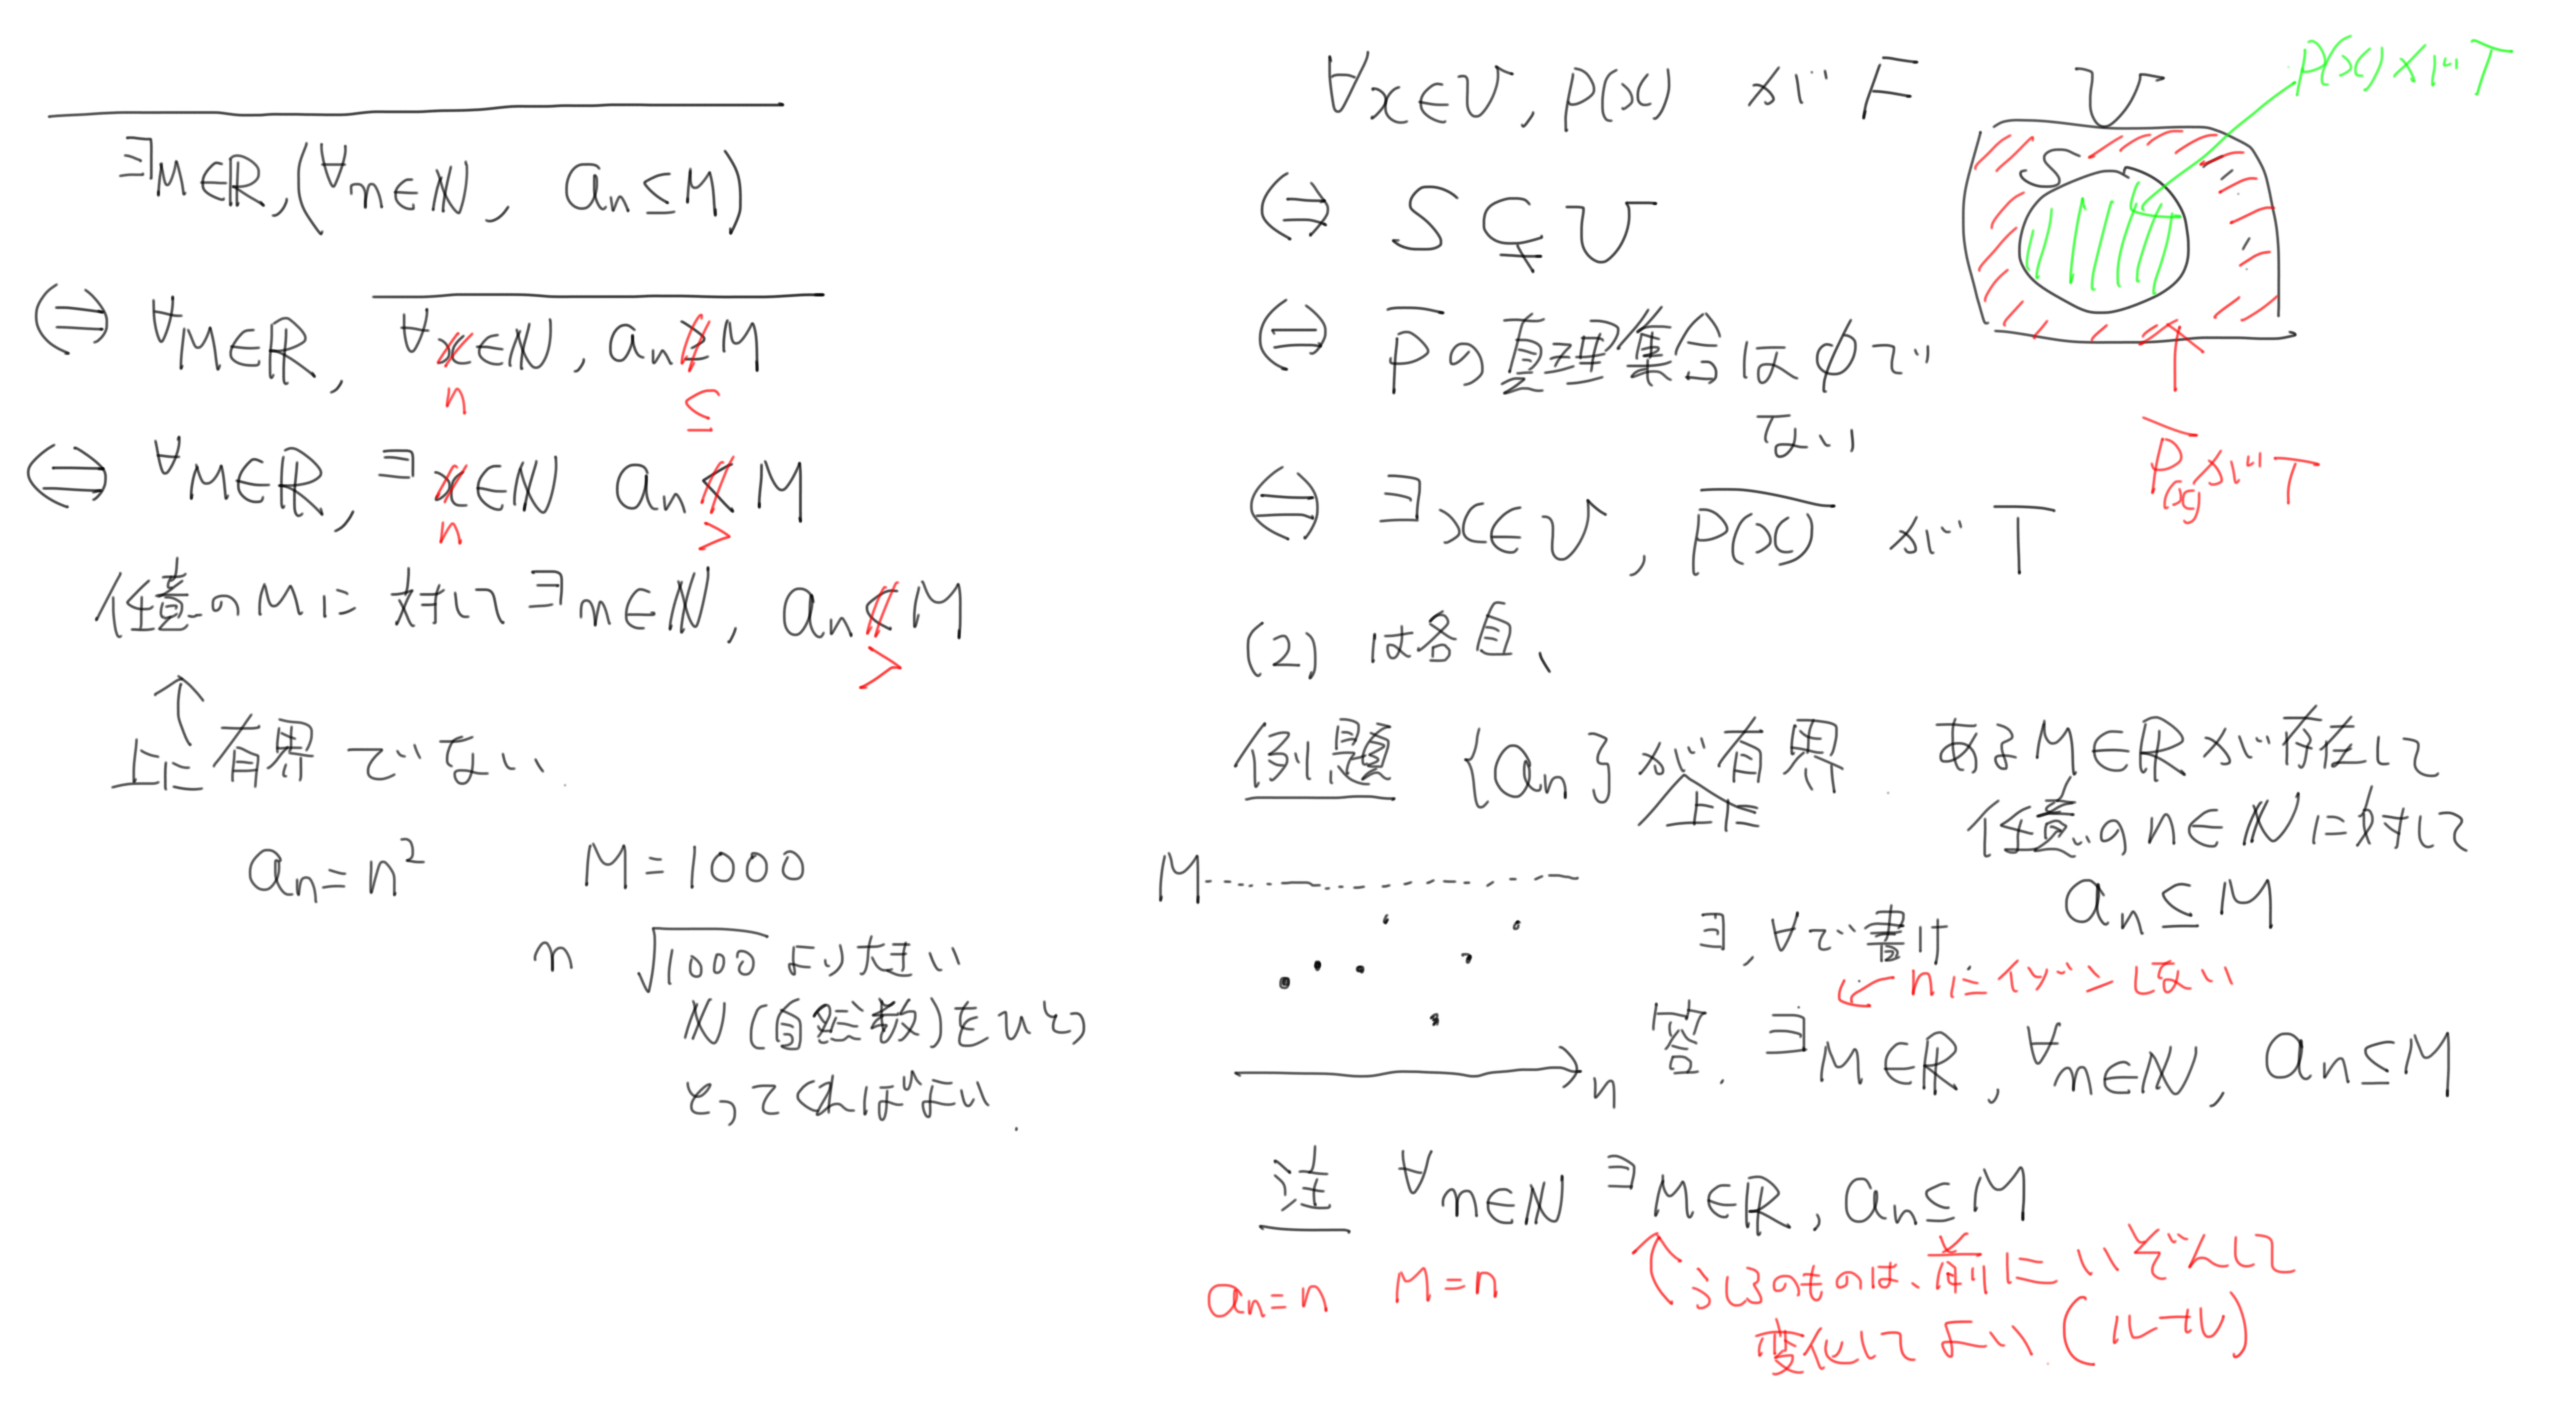 ∃M∈ℝ,(∀n∈ℕ, an≦M)
⇔ ∀M∈ℝ, ∀x∈ℕ, an≧M
n ≦
⇔ ∀M∈ℝ, ∃x∈ℕ an<M
n >
任意のMに対して∃n∈ℕ, an<M
>
↑
上に有界でない
an=n² M=1000
n √1000より大きい
ℕ(自然数)をひとつ
とってくればよい.
∀x∈U, P(x) が F
⇔ S⊊U
⇔ P̅の真理集合はφで
ない
⇔ ∃x∈U, P(x) が T
U
S
P(x)がT
P(x)がT
(2) は各自、
例題 {an}が有界
上に
あるM∈ℝが存在して
任意のn∈ℕに対して
an≦M
M
n
∃,∀で書け
←nにイゾンしない
答. ∃M∈ℝ, ∀n∈ℕ, an≦M
注 ∀n∈ℕ ∃M∈ℝ, an≦M
an=n M=n
うしろのものは、前にいぞんして
変化してよい(ルール)